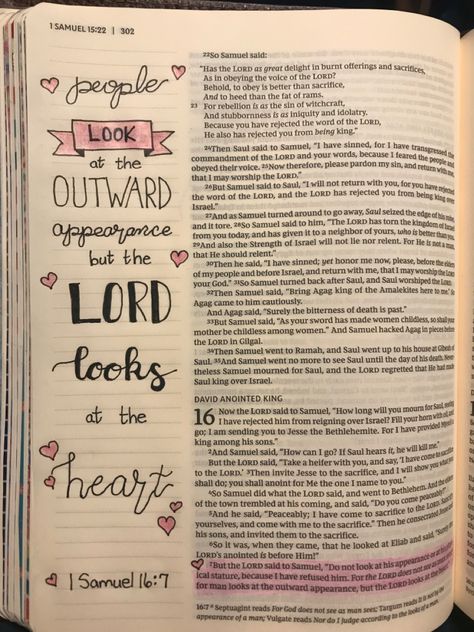 1 SAMUEL 15:22 | 302
people
LOOK
at the
OUTWARD
appearance
but the
LORD
looks
at the
heart
1 Samuel 16:7
22So Samuel said:
"Has the LORD as great delight in burnt offerings and sacrifices,
As in obeying the voice of the LORD?
Behold, to obey is better than sacrifice,
And to heed than the fat of rams.
23 For rebellion is as the sin of witchcraft,
And stubbornness is as iniquity and idolatry.
Because you have rejected the word of the LORD,
He also has rejected you from being king."
24Then Saul said to Samuel, "I have sinned, for I have transgressed the
commandment of the LORD and your words, because I feared the people and
obeyed their voice. 25Now therefore, please pardon my sin, and return with me,
that I may worship the LORD."
26But Samuel said to Saul, "I will not return with you, for you have rejected
the word of the LORD, and the LORD has rejected you from being king over
Israel."
27And as Samuel turned around to go away, Saul seized the edge of his robe,
and it tore. 28So Samuel said to him, "The LORD has torn the kingdom of Israel
from you today, and has given it to a neighbor of yours, who is better than you.
29And also the Strength of Israel will not lie nor relent. For He is not a man,
that He should relent."
30Then he said, "I have sinned; yet honor me now, please, before the elders
of my people and before Israel, and return with me, that I may worship the LORD
your God." 31So Samuel turned back after Saul, and Saul worshiped the LORD.
32Then Samuel said, "Bring Agag king of the Amalekites here to me." So
Agag came to him cautiously.
And Agag said, "Surely the bitterness of death is past."
33But Samuel said, "As your sword has made women childless, so shall your
mother be childless among women." And Samuel hacked Agag in pieces before
the LORD in Gilgal.
34Then Samuel went to Ramah, and Saul went up to his house at Gibeah of
Saul. 35And Samuel went no more to see Saul until the day of his death. Never-
theless Samuel mourned for Saul, and the LORD regretted that He had made
Saul king over Israel.
DAVID ANOINTED KING
16 Now the LORD said to Samuel, "How long will you mourn for Saul, seeing
I have rejected him from reigning over Israel? Fill your horn with oil, and
go; I am sending you to Jesse the Bethlehemite. For I have provided Myself a
king among his sons."
2And Samuel said, "How can I go? If Saul hears it, he will kill me."
But the LORD said, "Take a heifer with you, and say, 'I have come to sacrifice
to the LORD.' 3Then invite Jesse to the sacrifice, and I will show you what you
shall do; you shall anoint for Me the one I name to you."
4So Samuel did what the LORD said, and went to Bethlehem. And the elders
of the town trembled at his coming, and said, "Do you come peaceably?"
5And he said, "Peaceably; I have come to sacrifice to the LORD. Sanctify
yourselves, and come with me to the sacrifice." Then he consecrated Jesse and
his sons, and invited them to the sacrifice.
6So it was, when they came, that he looked at Eliab and said, "Surely the
LORD's anointed is before Him!"
7But the LORD said to Samuel, "Do not look at his appearance or at his phys-
ical stature, because I have refused him. For the LORD does not see as man sees;
for man looks at the outward appearance, but the LORD looks at the heart."
16:7 Septuagint reads For God does not see as man sees; Targum reads It is not by the
appearance of a man; Vulgate reads Nor do I judge according to the looks of a man.